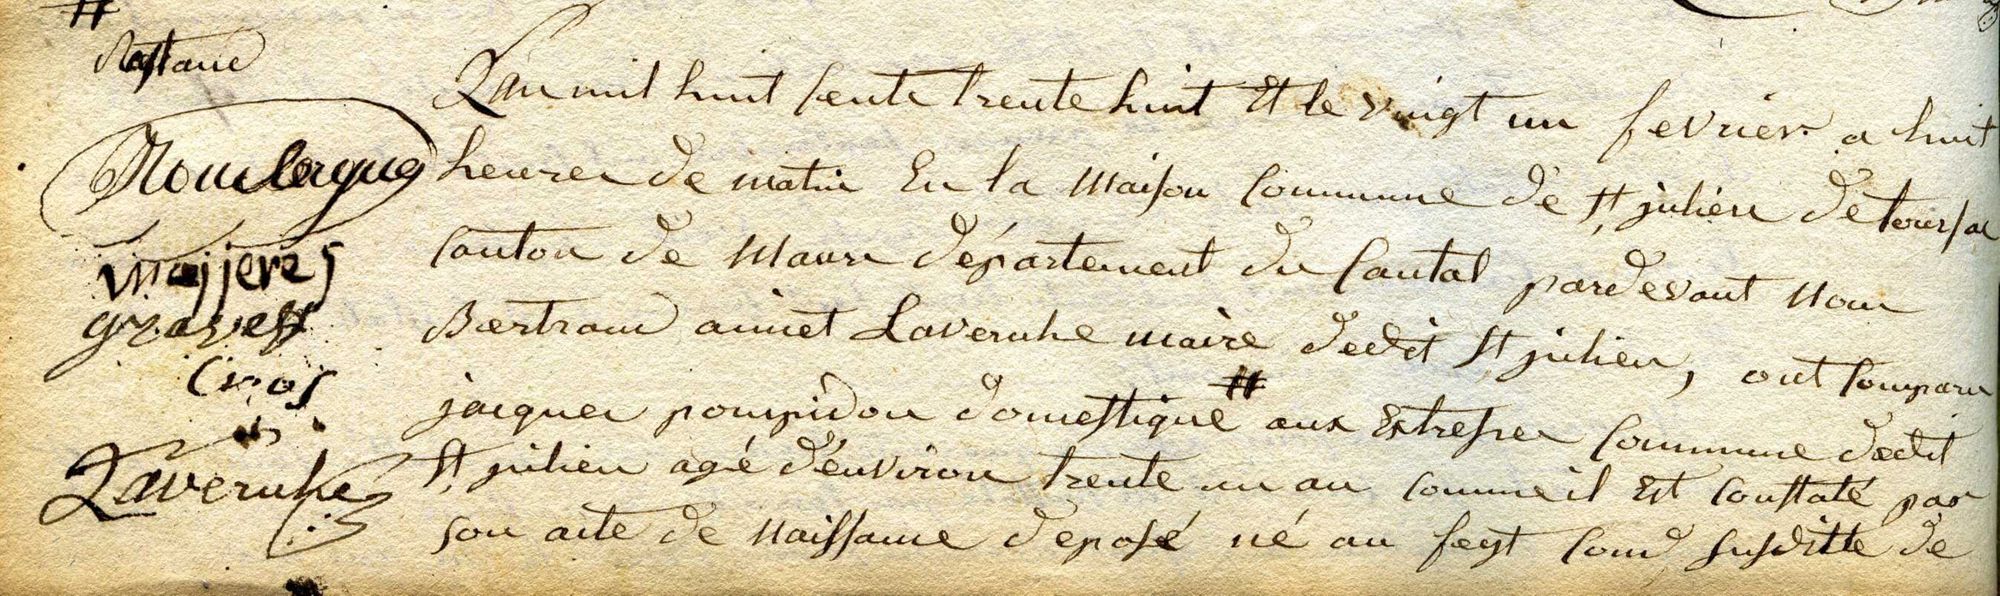 #
Lan mil huit cents trente huit Et le vingt un fevrier a huit
heures de matin En la Maison Commune de St julien de toursac
Canton de Maurs département du Cantal pardevant Nous
Bertrand aimet Laveruhe maire dedit St julien, ont Comparu
jacques pompidou domestique # aux Estreses Commune dedit
St julien agé d'environ trente un an comme il Est Constaté par
son acte de Naissance deposé né au feyt Com susditte de
majjeres
graves
Cros
Laveruhe